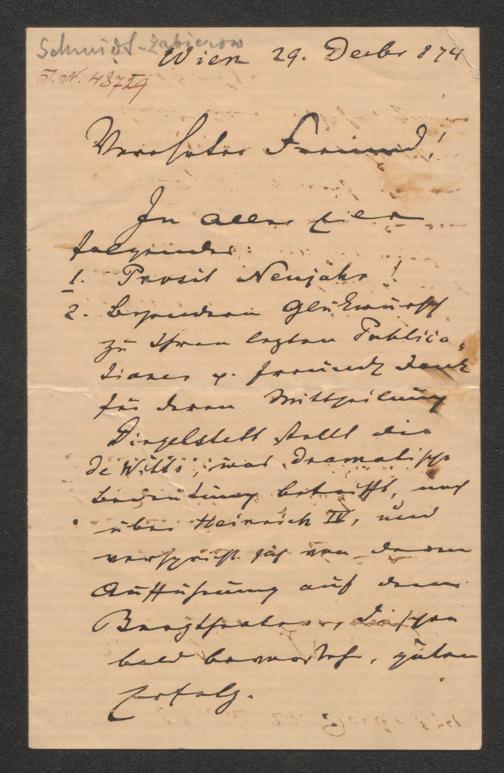 Schmidt-Zabierow
Wien 29. Decbr 874
J.N. 48729
Verehrter Freund!
In aller Eile
folgendes:
1. Prosit Neujahr!
2. Besondern Glükwunsch
zu Ihren lezten Publica
tionen u. freundl Dank
für deren Mittheilung
Dingelstedt stellt die
de Witts, was dramatische
Bedeutung betrifft, noch
über Heinrich IV, und
verspricht sich von deren
Aufführung auf dem
Burgtheater,
bald guten
Erfolg.